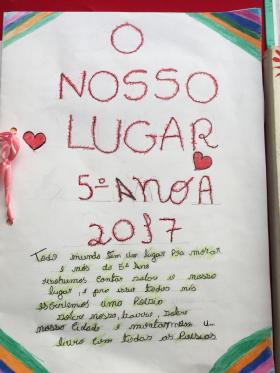 O
NOSSO
LUGAR
5º ANO A
2017
Todo mundo tem um lugar pra morar
e nós do 5º Ano
resolvemos contar sobre o nosso
lugar, e pra isso todos nós
escrevemos uma Poesia
sobre nosso bairro, sobre
nossa cidade e montamos um
livro com todas as Poesias